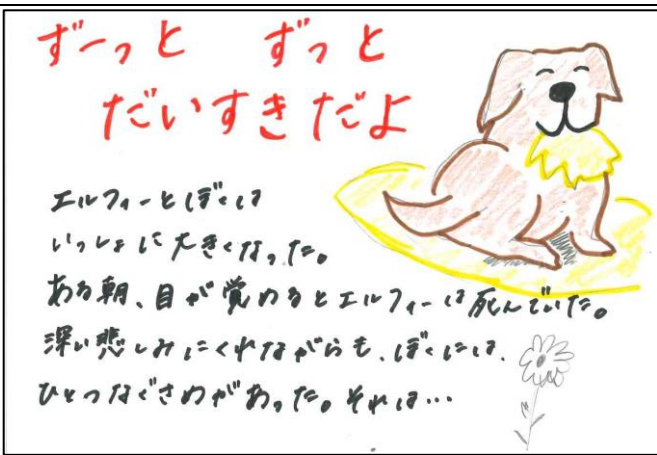 ずーっと ずっと
だいすきだよ
エルフィーとぼくは
いっしょに大きくなった。
ある朝、目が覚めるとエルフィーは死んでいた。
深い悲しみにくれながらも、ぼくには、
ひとつなぐさめがあった。それは…